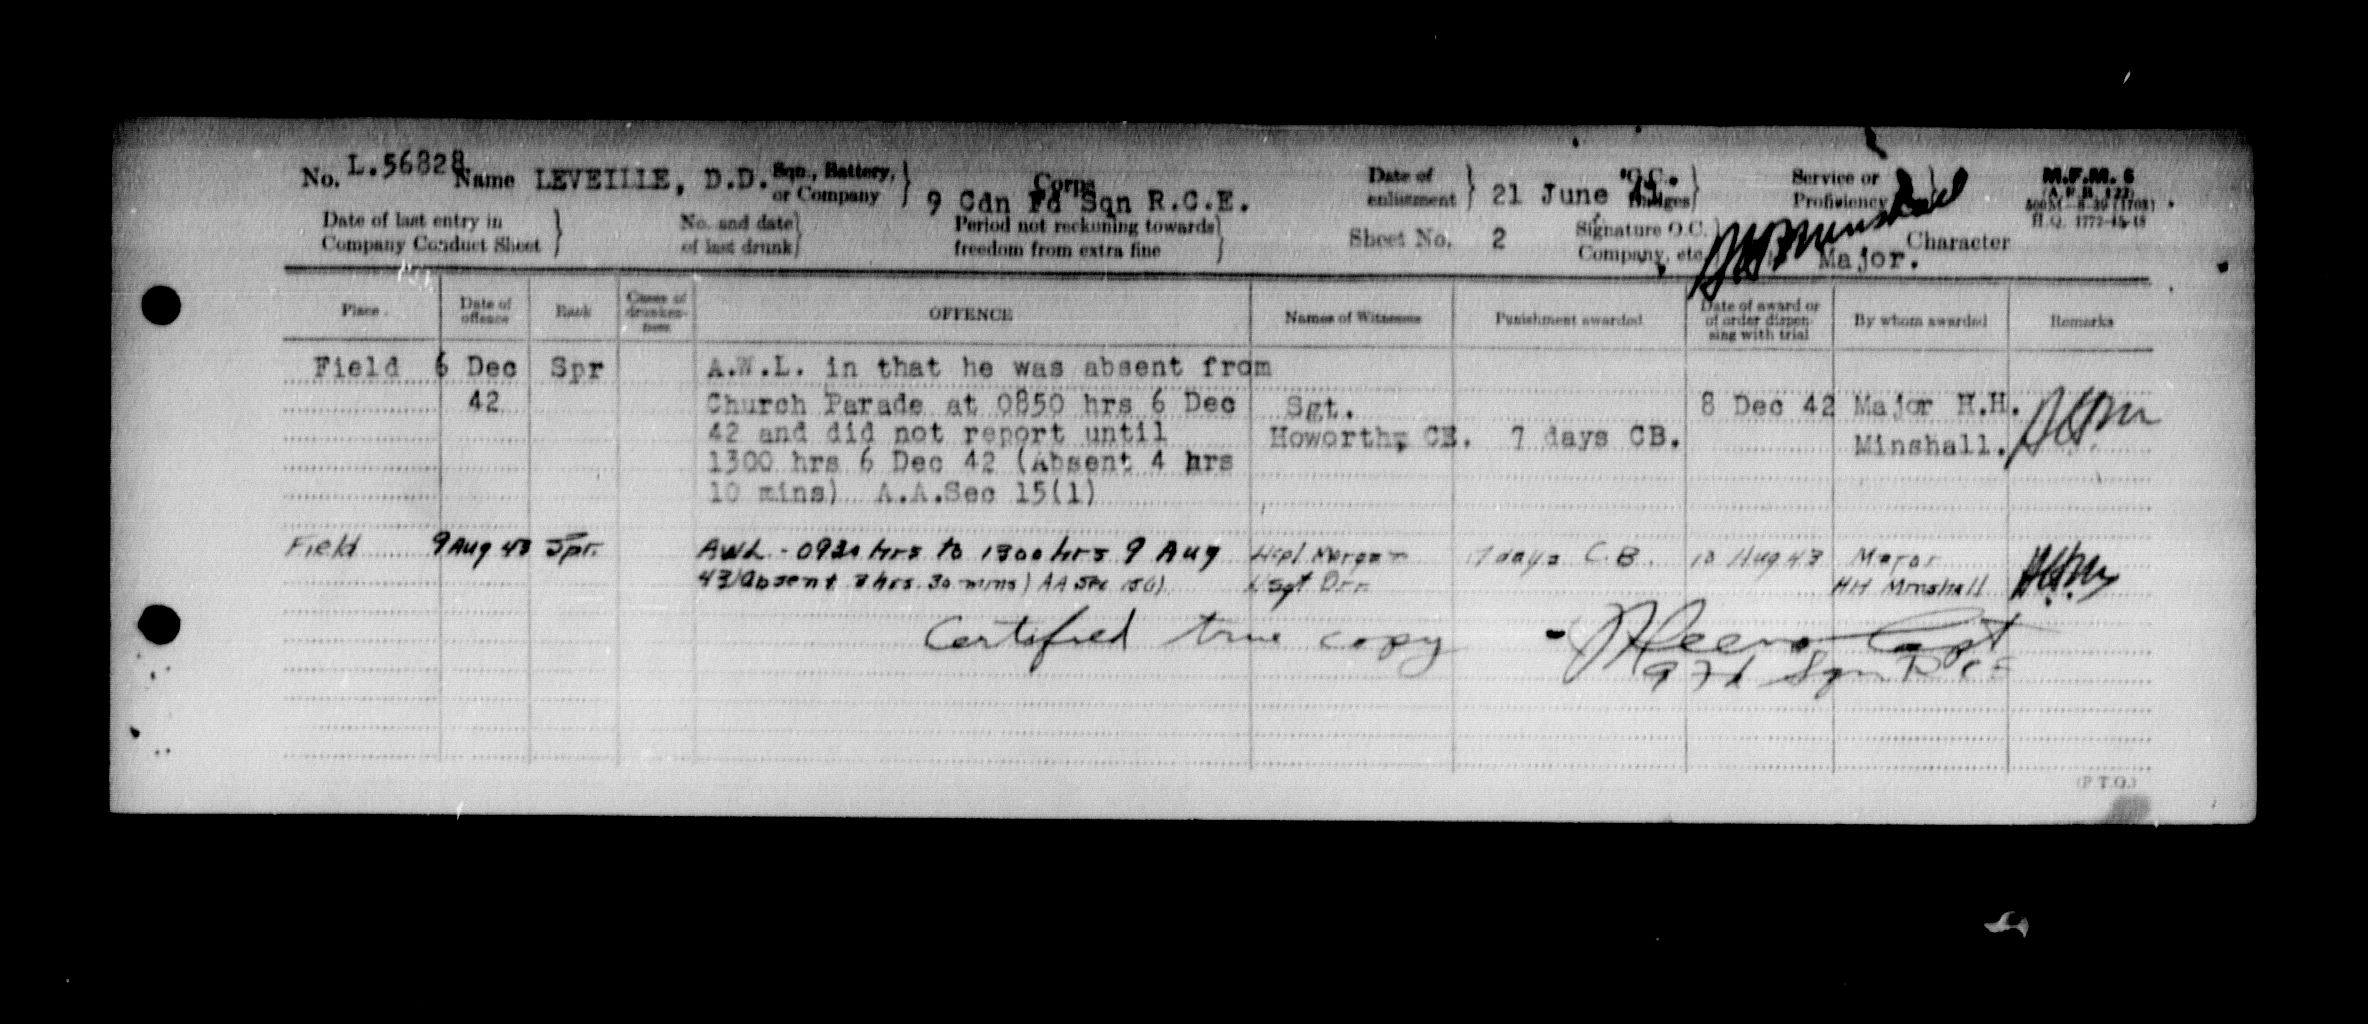 No. L.56828 Name LEVEILLE, D.D. Sqn., Battery, or Company } 9 Cdn Fd Sqn R.C.E. Corps Date of enlistment } 21 June 41 "G.C." Badges } Service or Proficiency M.F.M. 6
Date of last entry in Company Conduct Sheet } No. and date of last drunk } Period not reckoning towards freedom from extra fine } Sheet No. 2 Signature O.C. Company, etc. } HHMinshall Major. Character
H.Q. 1772-45-18
Place Date of offence Rank Cases of drunkenness OFFENCE Names of Witnesses Punishment awarded Date of award or of order dispensing with trial By whom awarded Remarks
Field 6 Dec Spr A.W.L. in that he was absent from
42 Church Parade at 0850 hrs 6 Dec Sgt. 8 Dec 42 Major H.H.
42 and did not report until Howorth, CE. 7 days CB. Minshall.
1300 hrs 6 Dec 42 (Absent 4 hrs
10 mins) A.A.Sec 15(1)
Field 9 Aug 43 Spr. AWL - 0930 hrs to 1300 hrs 9 Aug Morgan 7 days C.B. 10 Aug 43 Major
43 (Absent 3 hrs. 30 mins) AA Sec 15(1) HH Minshall
Certified true copy - Capt
9 Fd Sqn RCE
(P.T.O.)